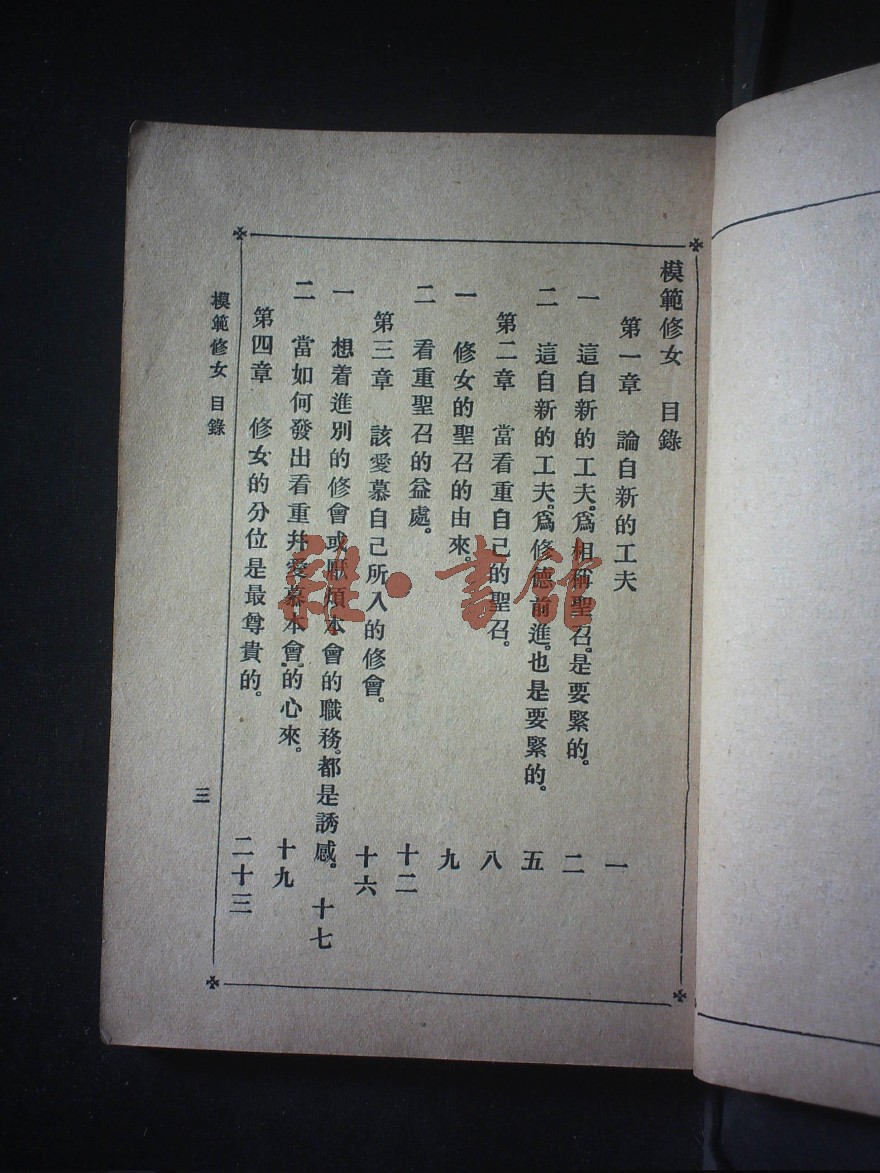 模範修女　目錄
第一章　論自新的工夫　一
一　這自新的工夫。爲相稱聖召。是要緊的。　二
二　這自新的工夫。爲修德前進。也是要緊的。　五
第二章　當看重自己的聖召。　八
一　修女的聖召的由來。　九
二　看重聖召的益處。　十二
第三章　該愛慕自己所入的修會。　十六
一　想着進別的修會或厭煩本會的職務。都是誘感。　十七
二　當如何發出看重幷愛慕本會的心來。　十九
第四章　修女的分位是最尊貴的。　二十三
模範修女　目錄
三
雜·書館